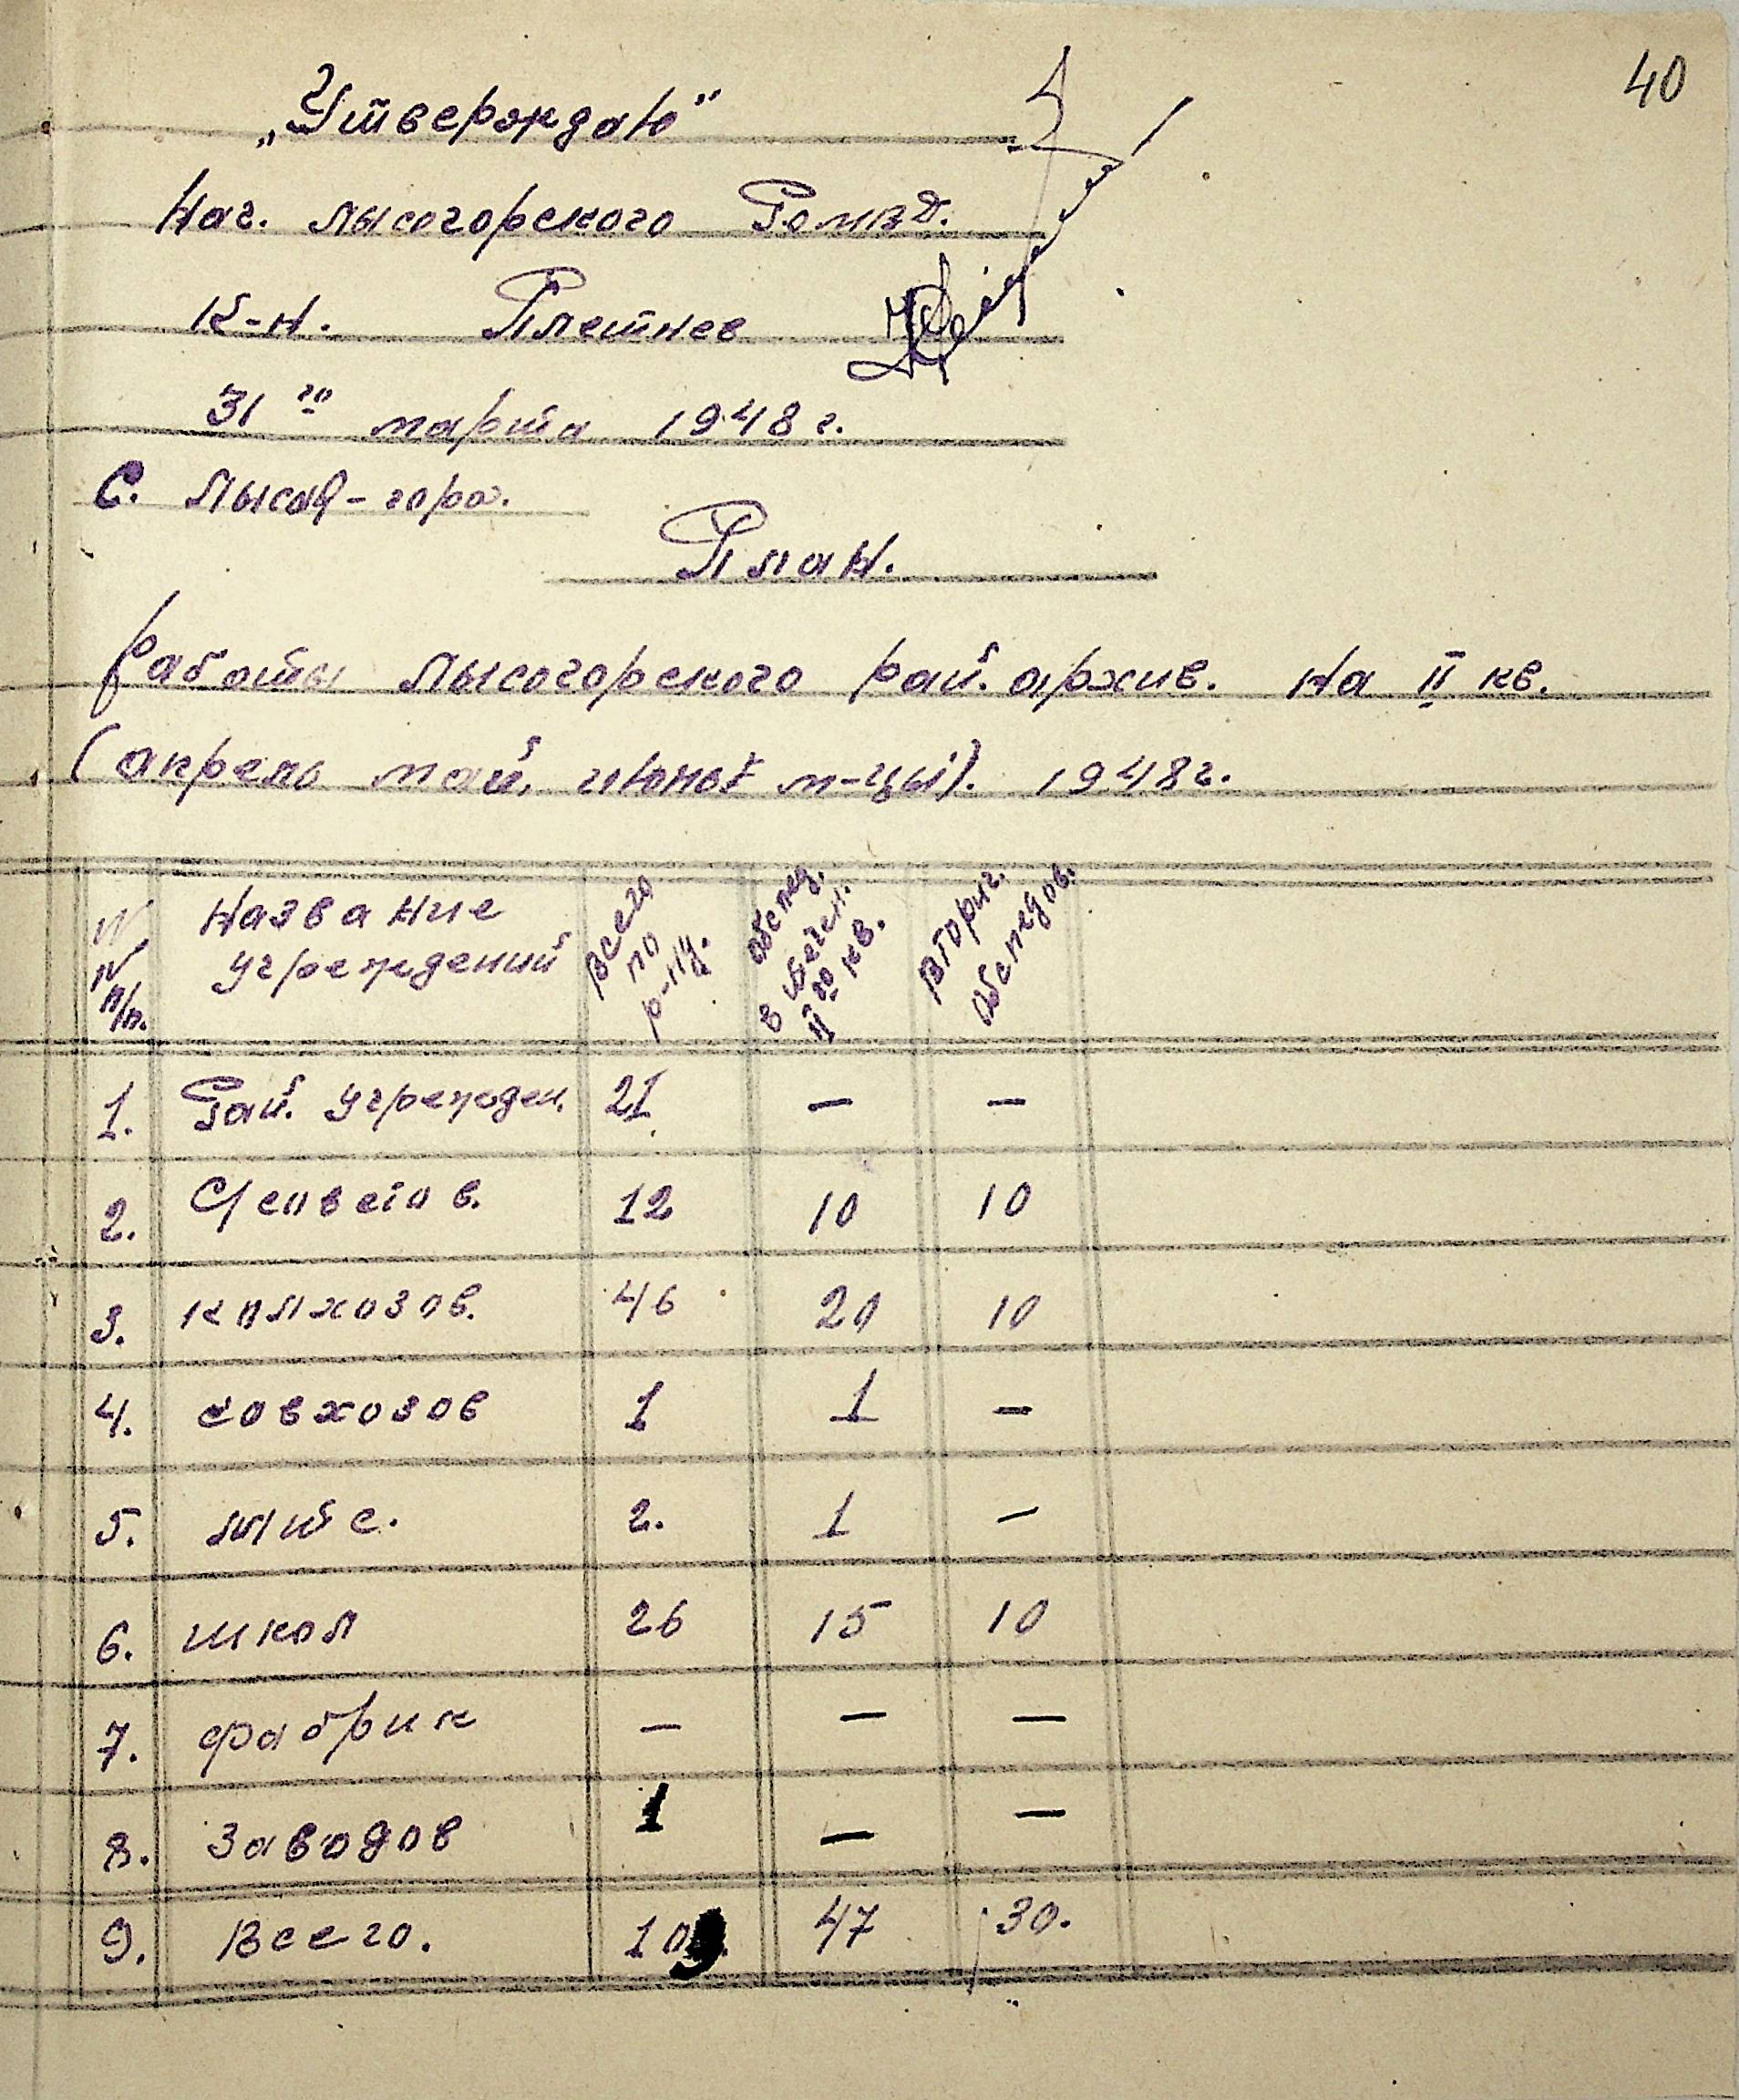 40
„Утверждаю"
Нач. Лысогорского РОМВД.
К-н. Плетнев
31го марта 1948 г.
С. Лысая-гора.
План.
Работы Лысогорского рай. архив. на II кв.
(апрель май, июнь м-цы). 1948 г.
№ № п/п. Название учреждений Всего по р-ну. Обслед. в течен. II го кв. Вторич. обследов.
1. Рай. учрежден. 21 — —
2. С/советов. 12 10 10
3. колхозов. 46 20 10
4. совхозов 1 1 —
5. 2. 1 —
6. школ 26 15 10
7. фабрик — — —
8. Заводов 1 — —
9. Всего. 109. 47 30.